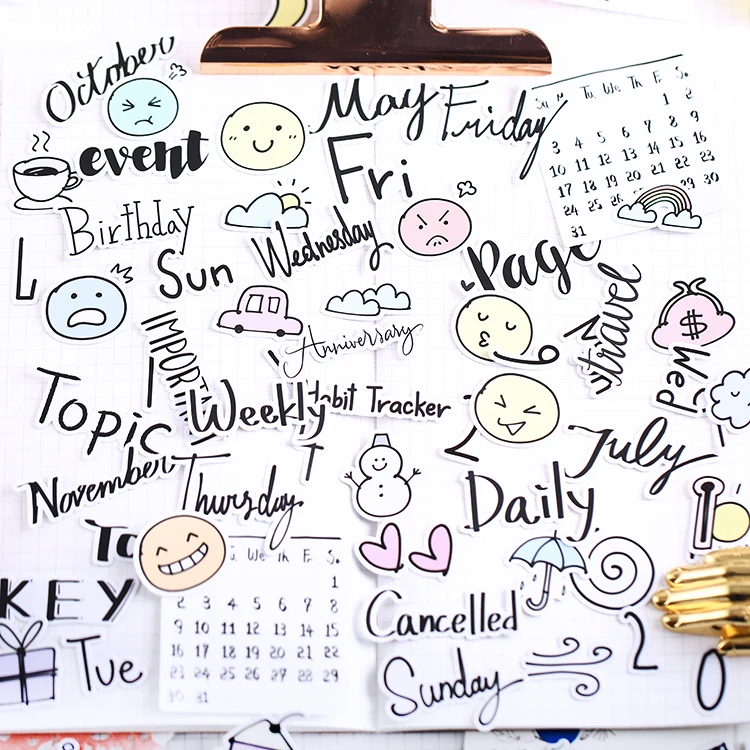 October
May
Friday
event
Fri
Su M Tu. We Th F. S.
1 2
3 4 5 6 7 8 9
10 11 12 13 14 15 16
17 18 19 20 21 22 23
24 25 26 29 30
31
Birthday
Sun
Wednesday
Page
L
travel
$
Wed
Anniversary
IMPORTANT
Topic
Weekly
Habit Tracker
July
November
Thursday.
Daily.
To
We Th F. S.
1
2 3 4 5 6 7 8
9 10 11 12 13 14 15
16 17 18 19 20 21 22
23 24 25 26 27 28 29
30 31
KEY
Cancelled
Tue
Sunday
2
0